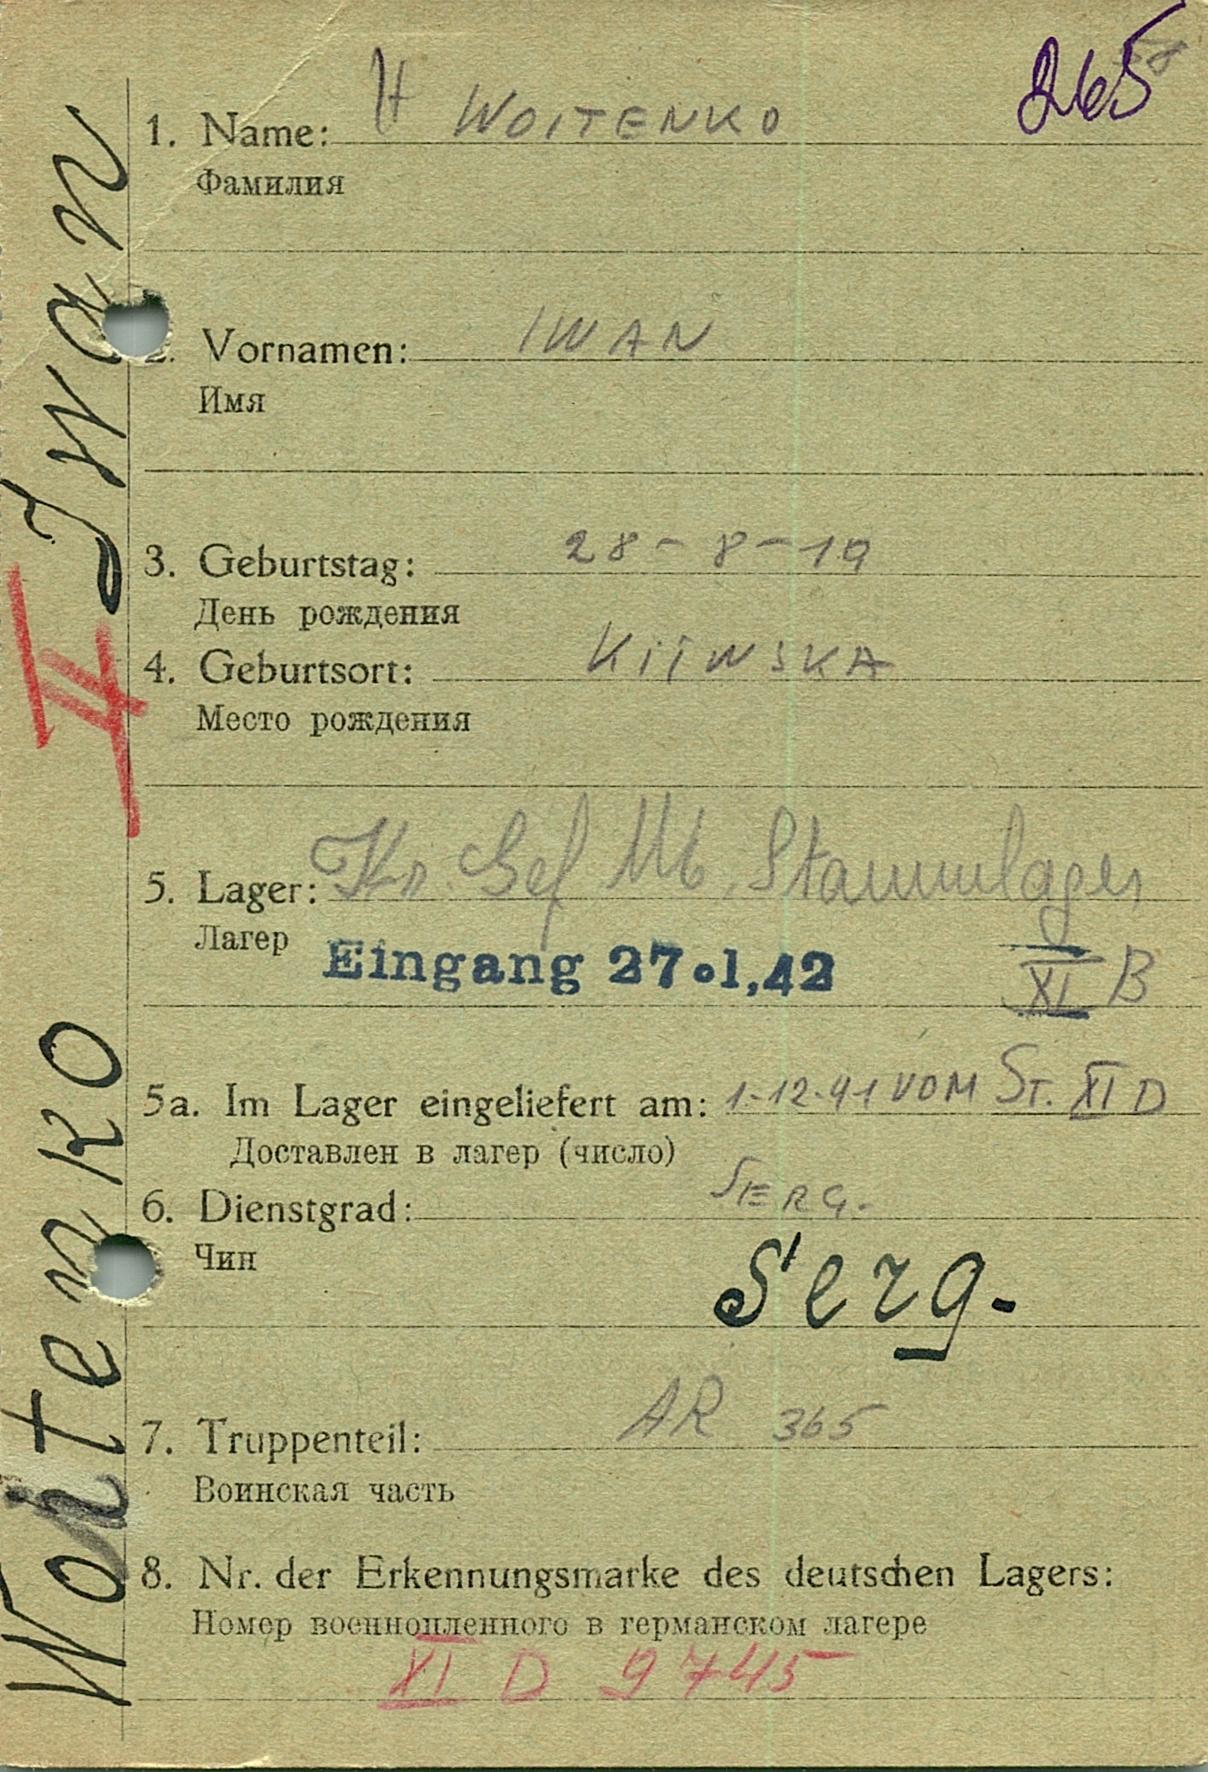 265
1. Name: WOITENKO
Фамилия
2. Vornamen: IWAN
Имя
3. Geburtstag: 28-8-19
День рождения
4. Geburtsort: KIIWSKA
Место рождения
5. Lager: Kr. Gef. Stammlager
Лагер Eingang 27.1,42 XI B
5a. Im Lager eingeliefert am: 1.12.41 VOM ST. XI D
Доставлен в лагер (число)
6. Dienstgrad: SERG.
Чин
Serg.
7. Truppenteil: AR 365
Воинская часть
8. Nr. der Erkennungsmarke des deutschen Lagers:
Номер военнопленного в германском лагере
XI D 9745
Woitenko Iwan
II